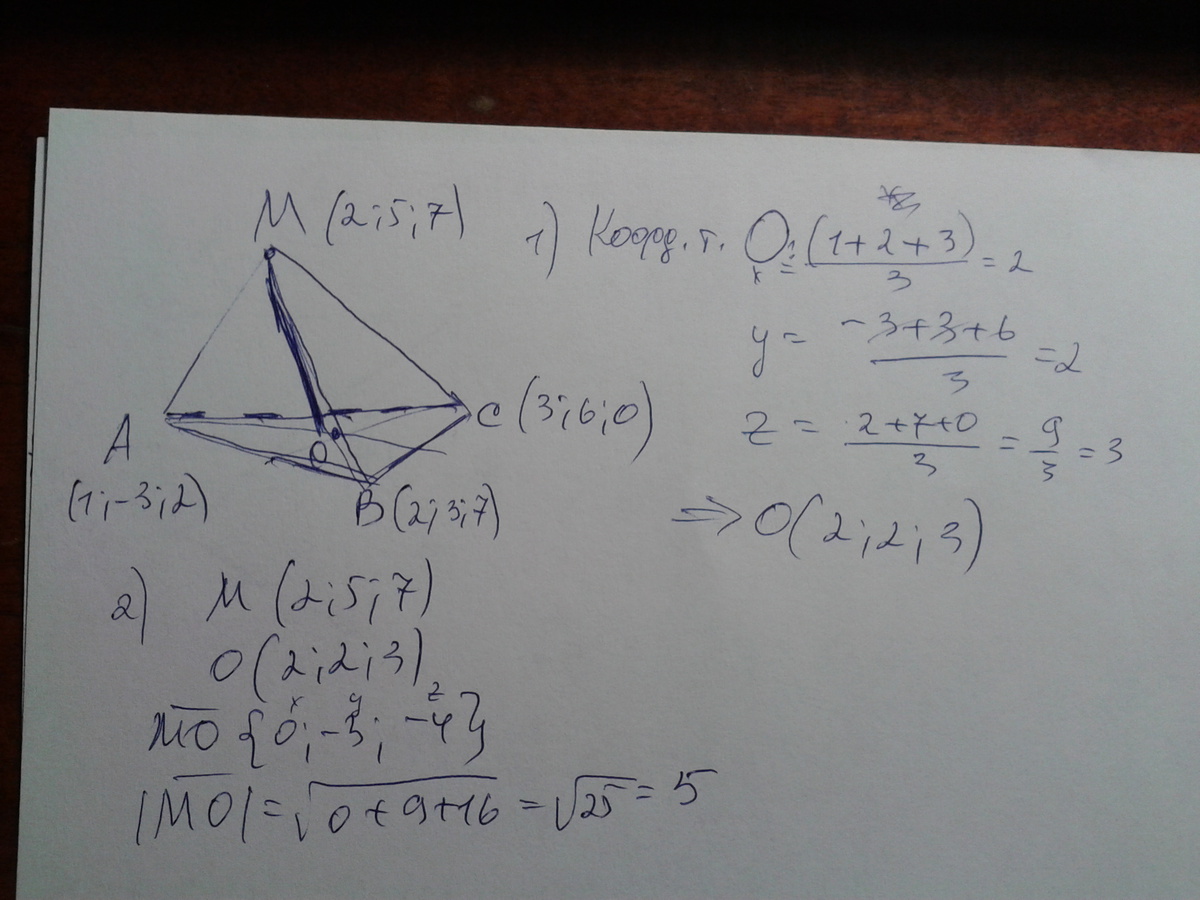 M (2;5;7)
A
(1;-3;2)
O
B (2;3;7)
C (3;6;0)
1) Коорд. т. O: x = (1+2+3)/3 = 2
y = -3+3+6/3 = 2
z = 2+7+0/3 = 9/3 = 3
⇒ O(2;2;3)
2) M (2;5;7)
O (2;2;3)
x y z
MO {0;-3;-4}
|MO| = √0+9+16 = √25 = 5